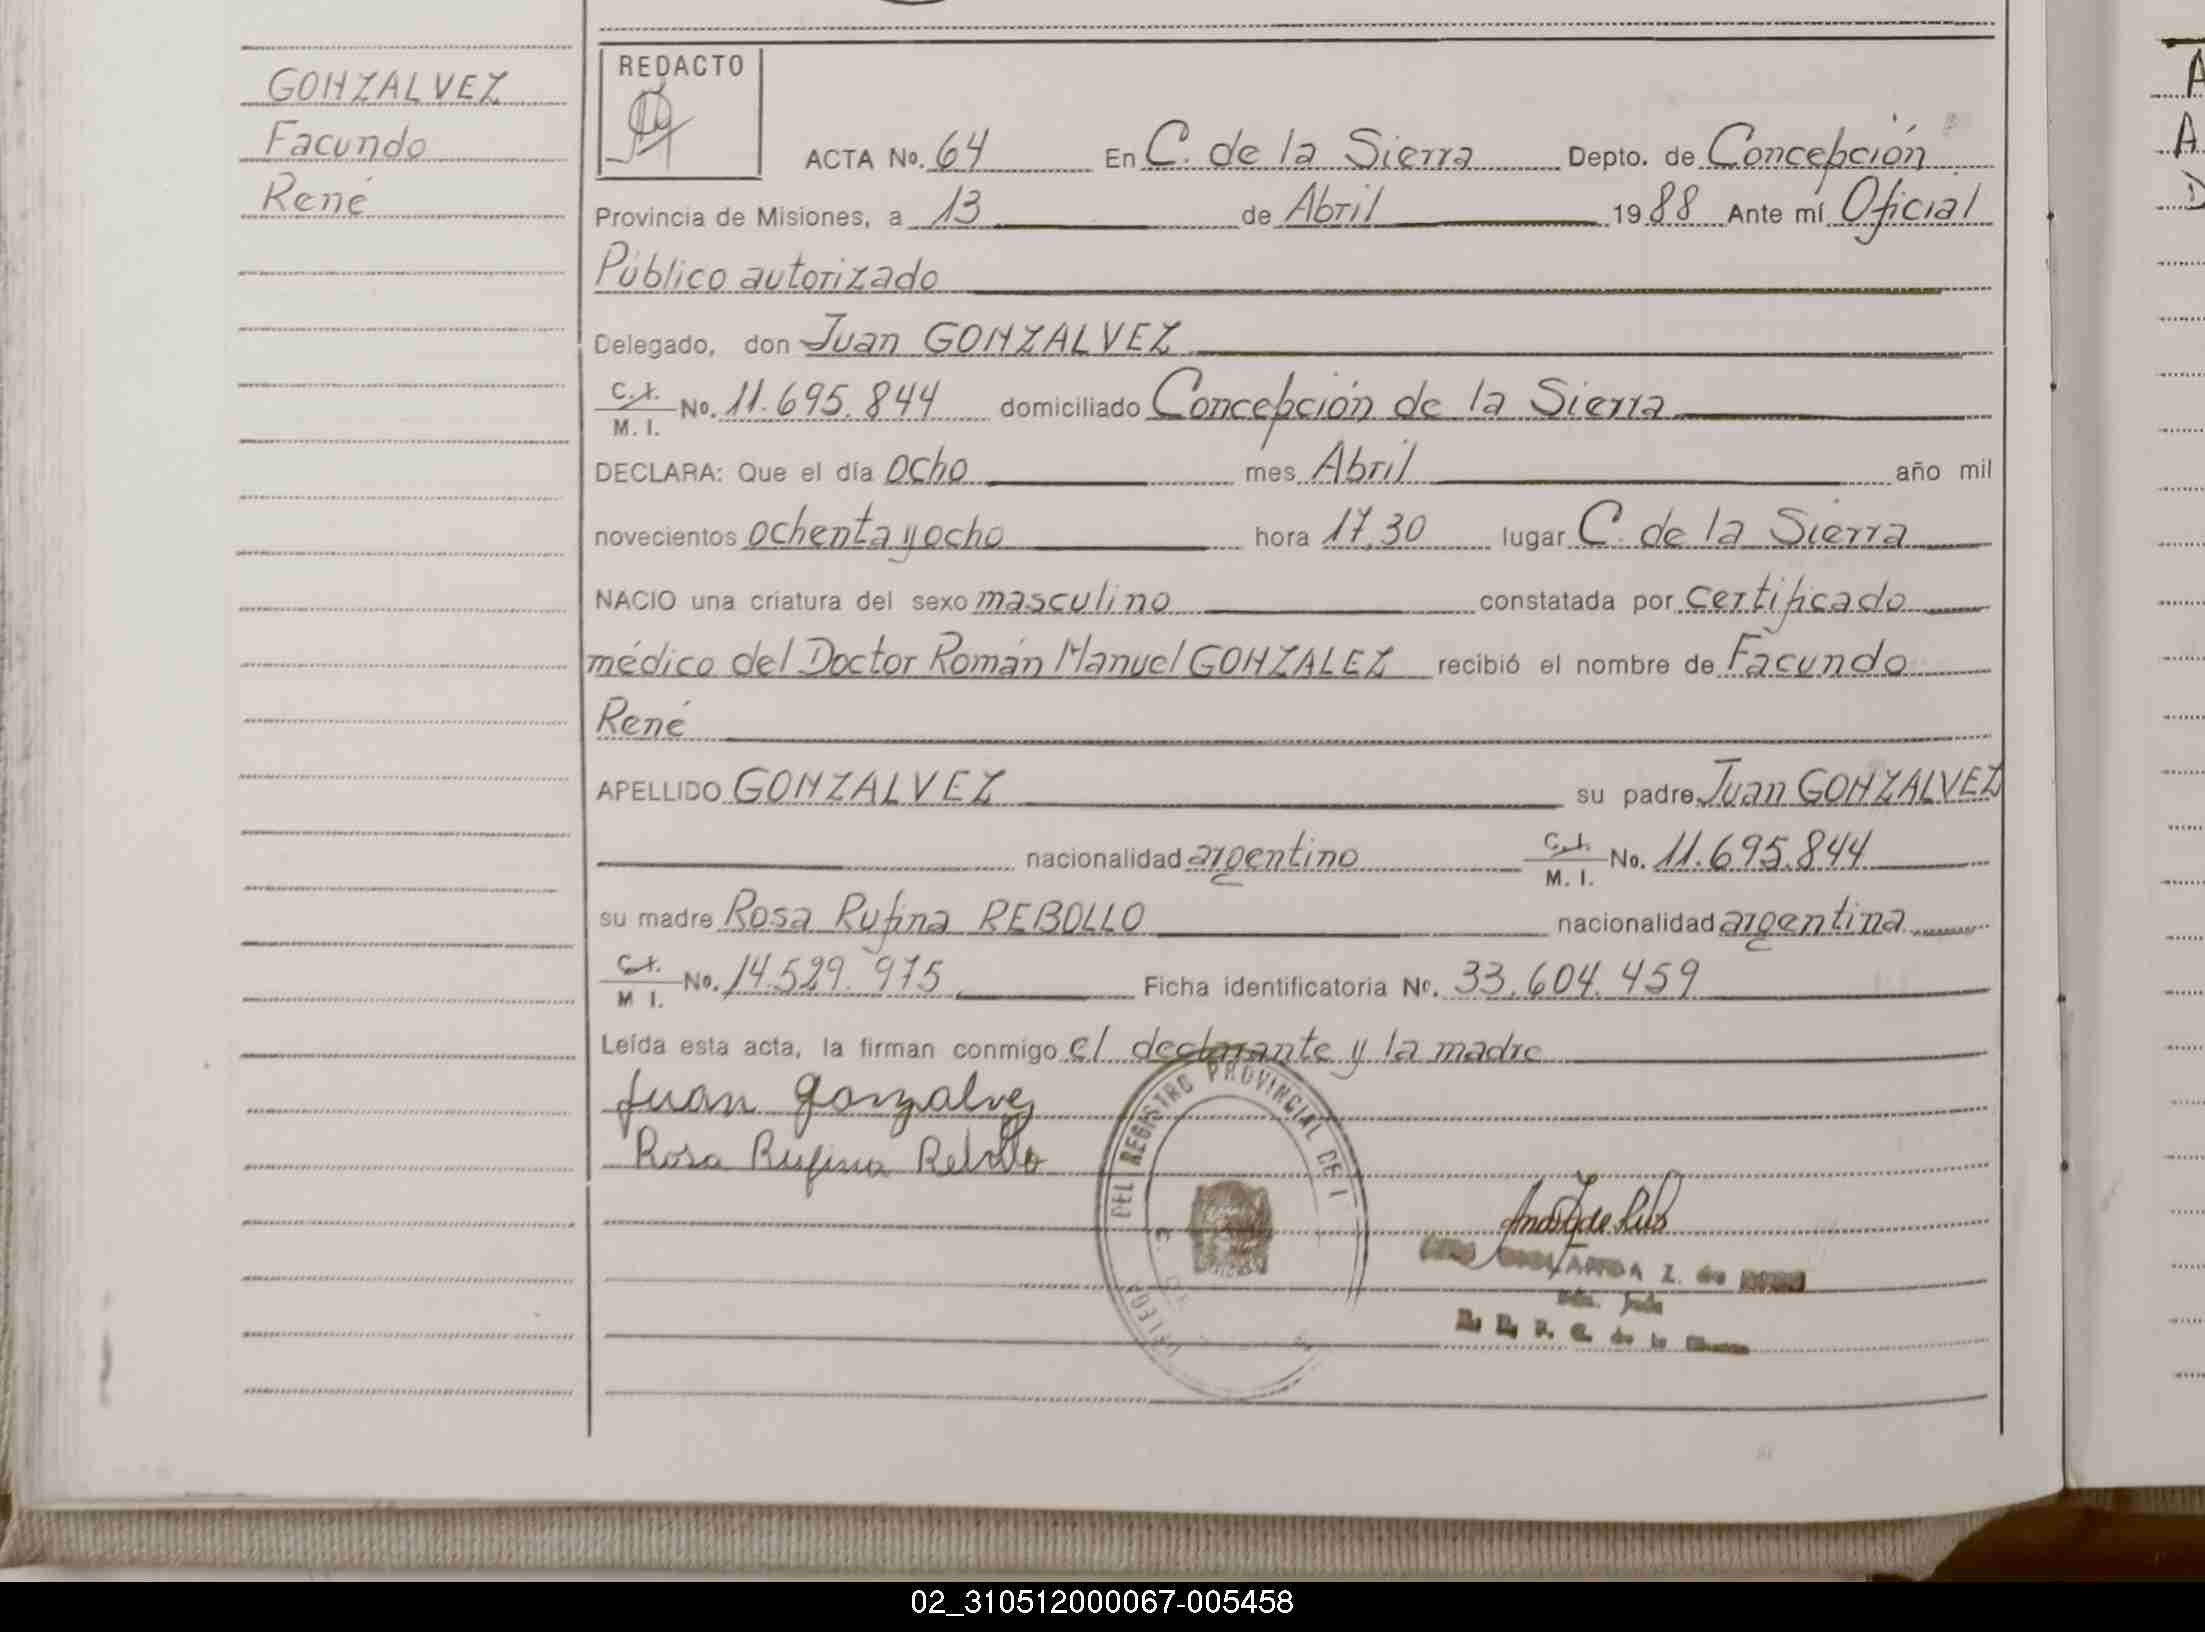 GONZALVEZ
Facundo
René
REDACTO
ACTA No. 64 En C. de la Sierra Depto. de Concepción
Provincia de Misiones, a 13 de Abril 1988 Ante mí Oficial
Público autorizado
Delegado, don Juan GONZALVEZ
C.I. M. I. No. 11.695.844 domiciliado Concepción de la Sierra
DECLARA: Que el día ocho mes Abril año mil
novecientos ochenta y ocho hora 17,30 lugar C. de la Sierra
NACIO una criatura del sexo masculino constatada por certificado
médico del Doctor Román Manuel GONZALEZ recibió el nombre de Facundo
René
APELLIDO GONZALVEZ su padre Juan GONZALVEZ
nacionalidad argentino C.I. M. I. No. 11.695.844
su madre Rosa Rufina REBOLLO nacionalidad argentina
C.I. M I. No. 14.529.975 Ficha identificatoria No. 33.604.459
Leída esta acta, la firman conmigo el declarante y la madre
Juan Gonzalvez
Rosa Rufina Rebollo
DEL REGISTRO PROVINCIAL DE
Z. de
C. de la
A
A
D
02_310512000067-005458